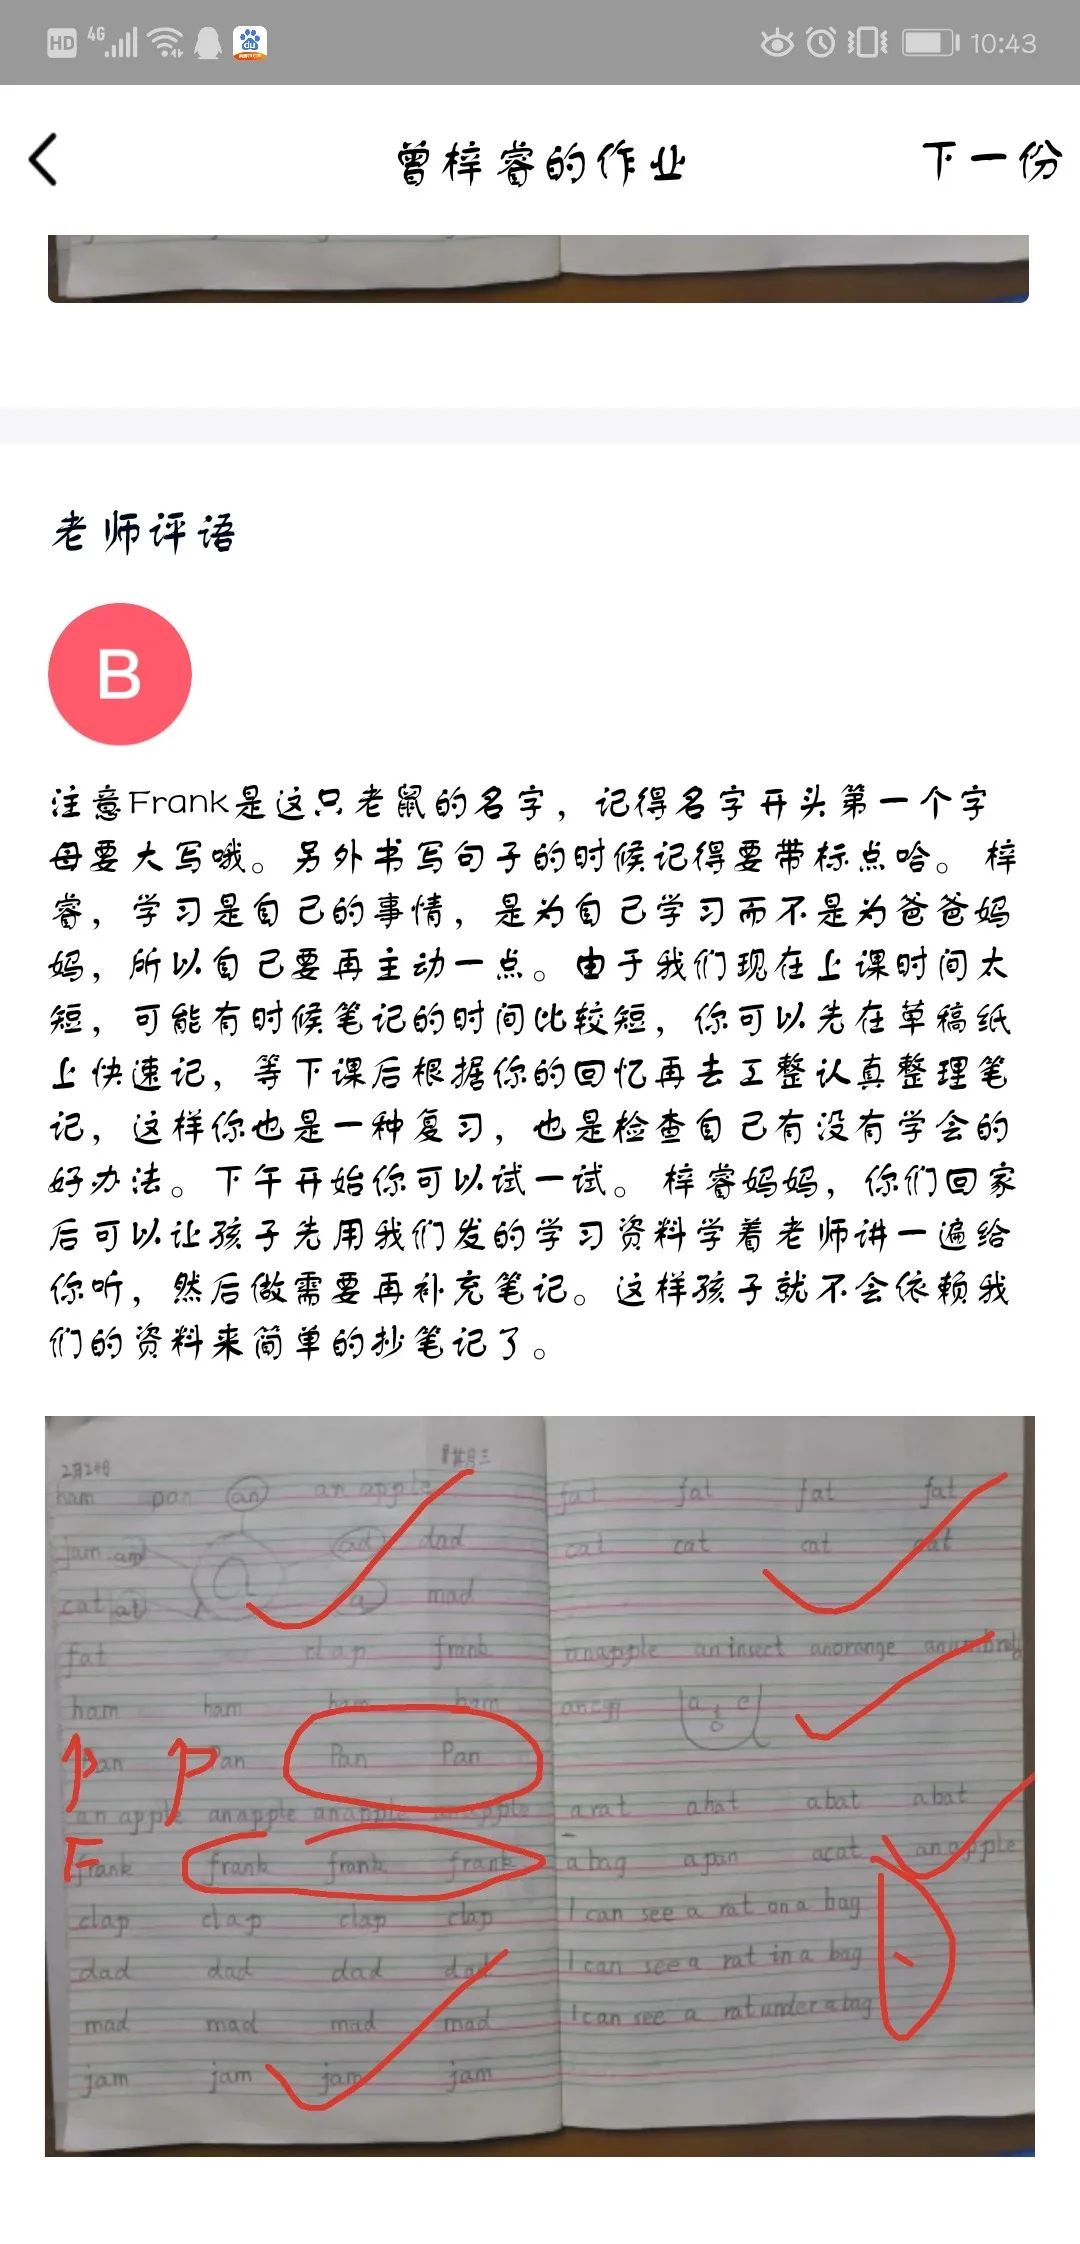 HD 4G 10:43
曾梓睿的作业 下一份
老师评语
B
注意Frank是这只老鼠的名字，记得名字开头第一个字
母要大写哦。另外书写句子的时候记得要带标点哈。梓
睿，学习是自己的事情，是为自己学习而不是为爸爸妈
妈，所以自己要再主动一点。由于我们现在上课时间太
短，可能有时候笔记的时间比较短，你可以先在草稿纸
上快速记，等下课后根据你的回忆再去工整认真整理笔
记，这样你也是一种复习，也是检查自己有没有学会的
好办法。下午开始你可以试一试。梓睿妈妈，你们回家
后可以让孩子先用我们发的学习资料学着老师讲一遍给
你听，然后做需要再补充笔记。这样孩子就不会依赖我
们的资料来简单的抄笔记了。
2月24日
ham pan an an apple
jam am ad dad
cat at a mad
fat clap frank
ham ham ham ham
p p
Pan Pan Pan Pan
an apple an apple an apple an apple
F
frank frank frank frank
clap clap clap clap
dad dad dad dad
mad mad mad mad
jam jam jam jam
fat fat fat fat
cat cat cat cat
an apple an insect an orange
a e i o
a rat a hat a bat a bat
a bag a pan a cat an apple
I can see a rat on a bag
I can see a rat in a bag
I can see a rat under a bag